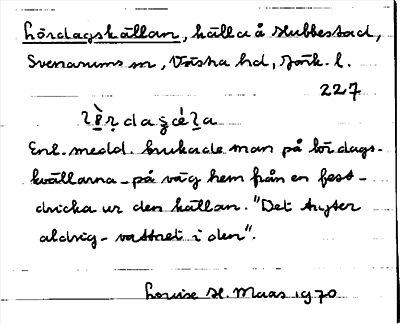 Lördagskällan, källa å Hubbestad,
Svenarums sn, Västra hd, Jönk. l.
227
Enl. medd. brukade man på lördags-
kvällarna – på väg hem från en fest –
dricka ur den källan. "Det tryter
aldrig – vattnet i den".
Louise H. Maas 1970